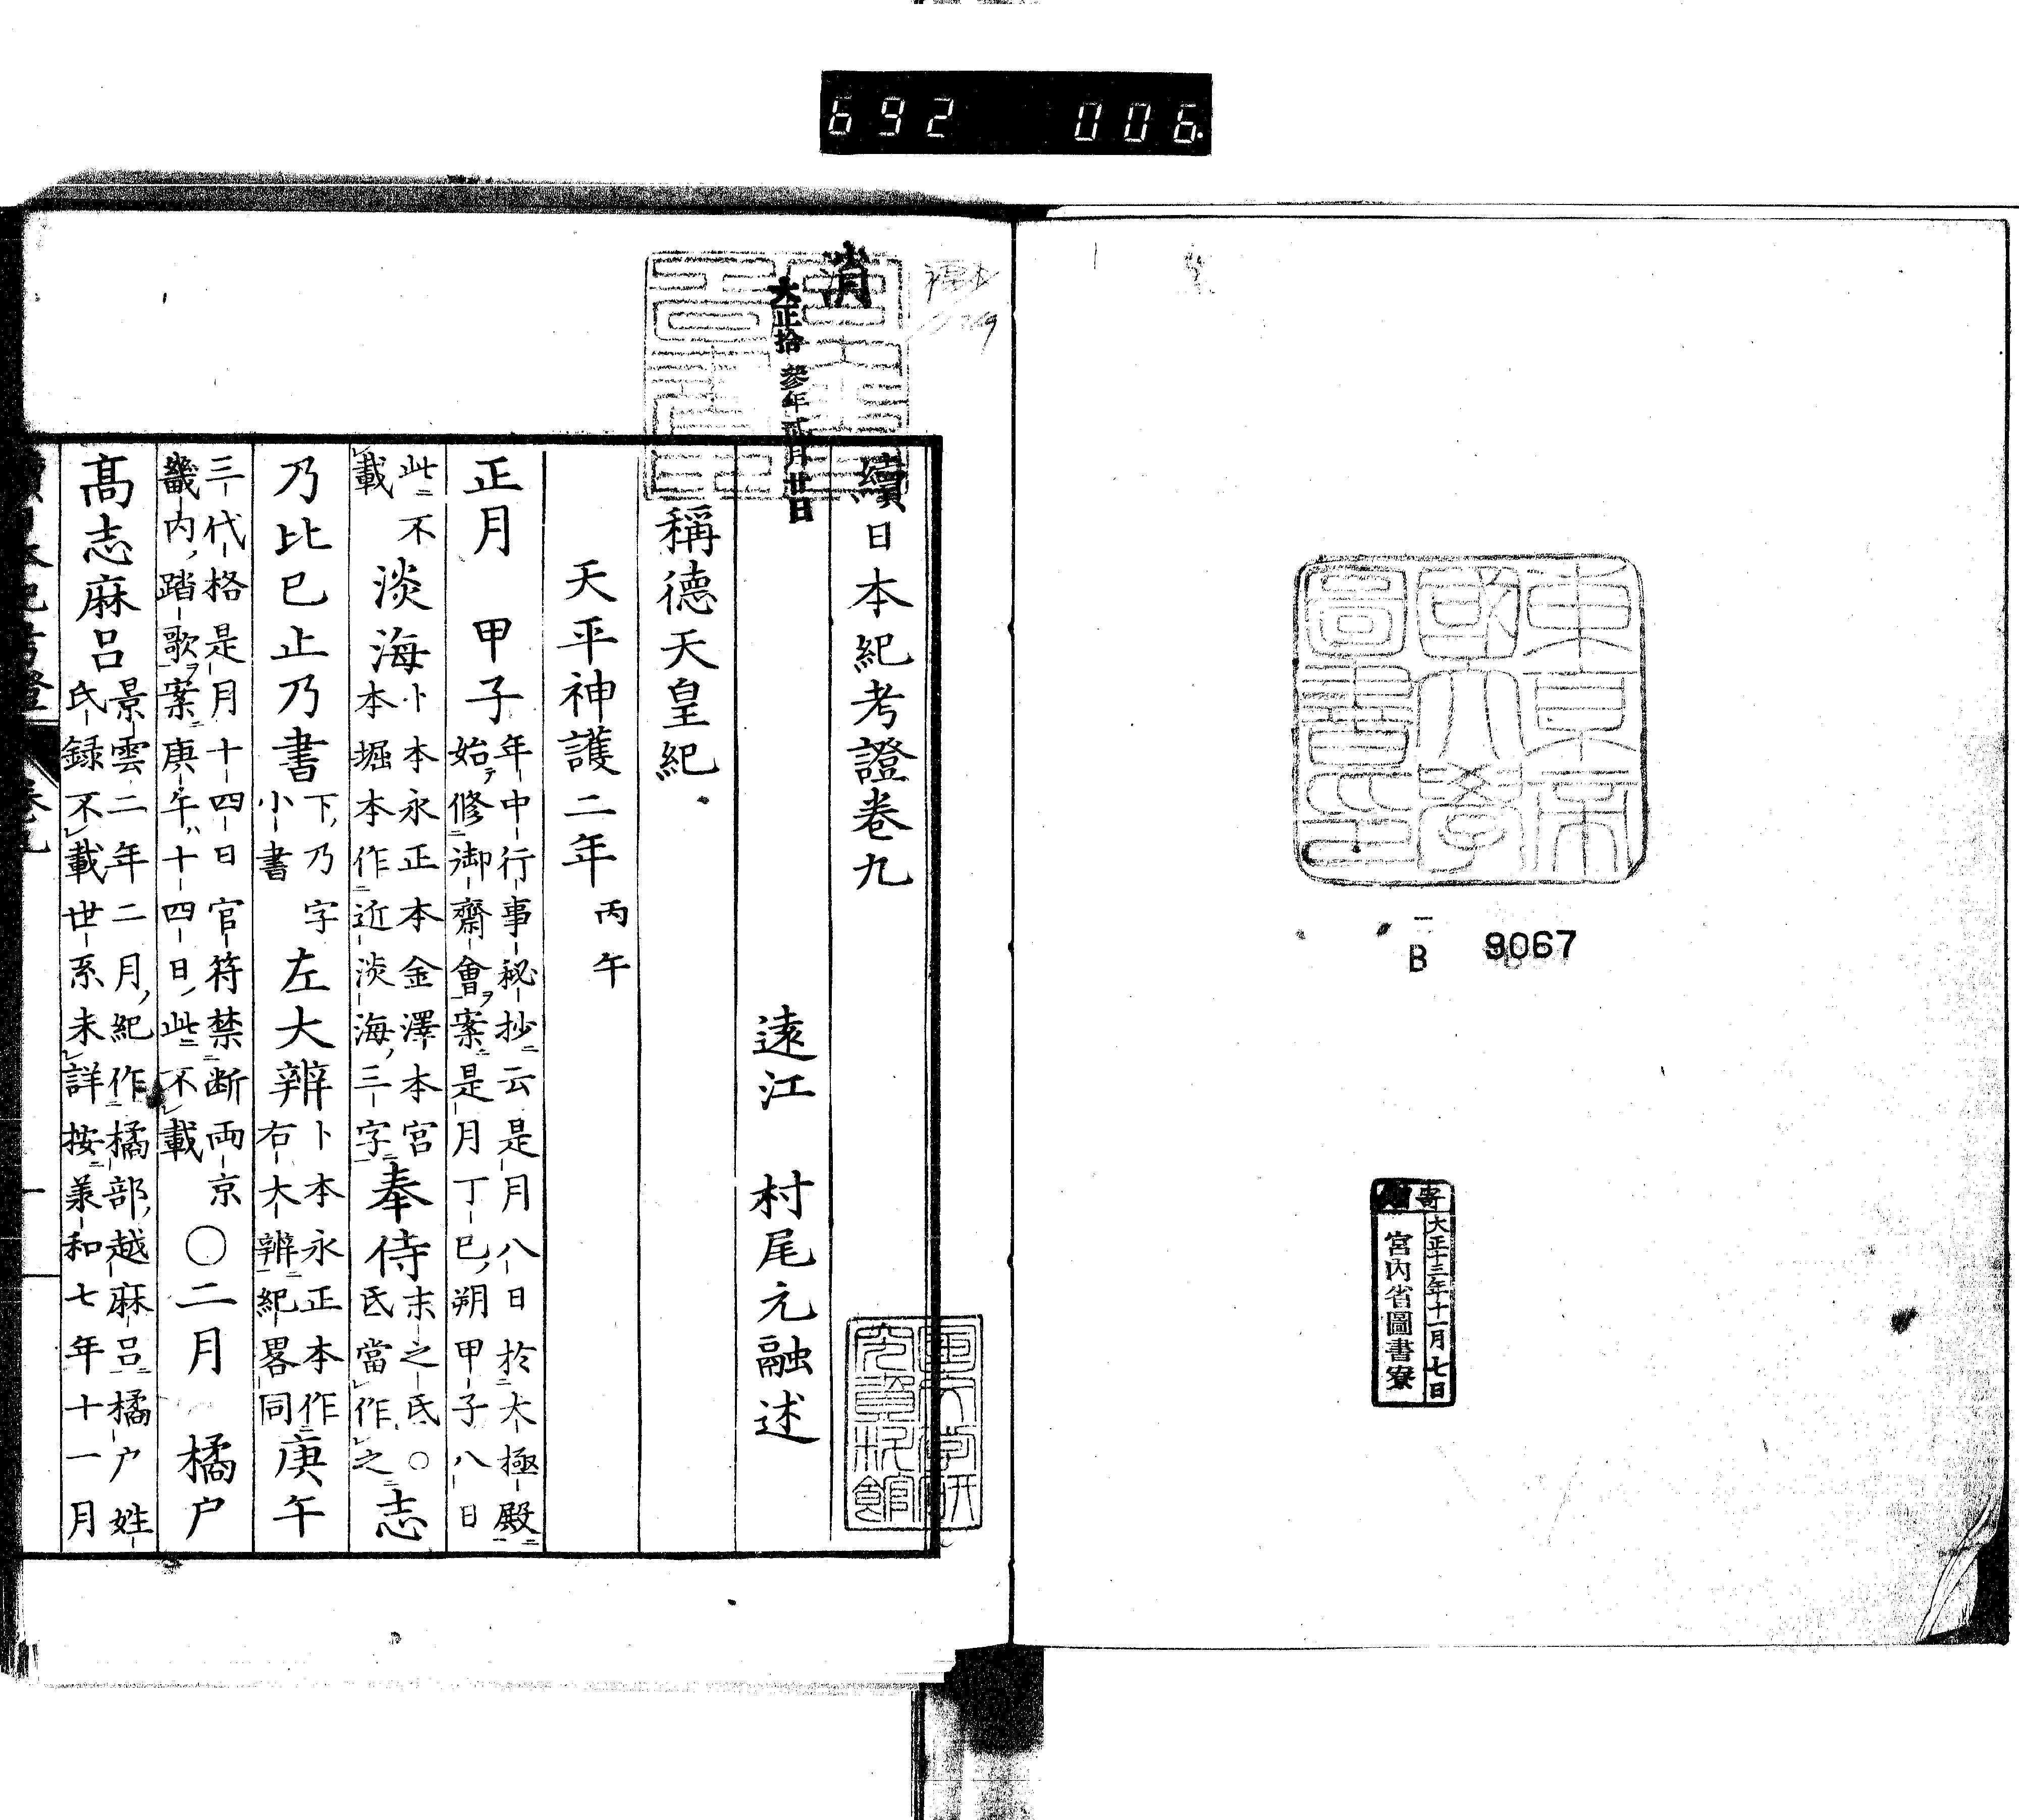 692 006
東京帝
國大學
圖書印
B 9067
寄贈
大正十三年十一月七日
宮内省圖書寮
消
大正拾參年貳月廿日
續日本紀考證卷九
遠江 村尾元融述
稱德天皇紀
天平神護二年 丙午
正月 甲子 年中行事秘抄云是月八日於大極殿
始テ修御齋會ヲ案是月丁巳朔甲子八日
此不
載 淡海 卜本永正本金澤本宮
本堀本作近淡海三字 奉侍 末之氐○
氐當作之 志
乃比巳止乃書 下乃字
小書 左大辨 卜本永正本作
右大辨紀畧同 庚午
三代格是月十四日官符禁断両京
畿内踏歌ヲ案庚午十四日此不載 ○二月 橘户
髙志麻呂 景雲二年二月紀作橘部越麻呂橘户姓
氏録不載世系未詳按兼和七年十一月